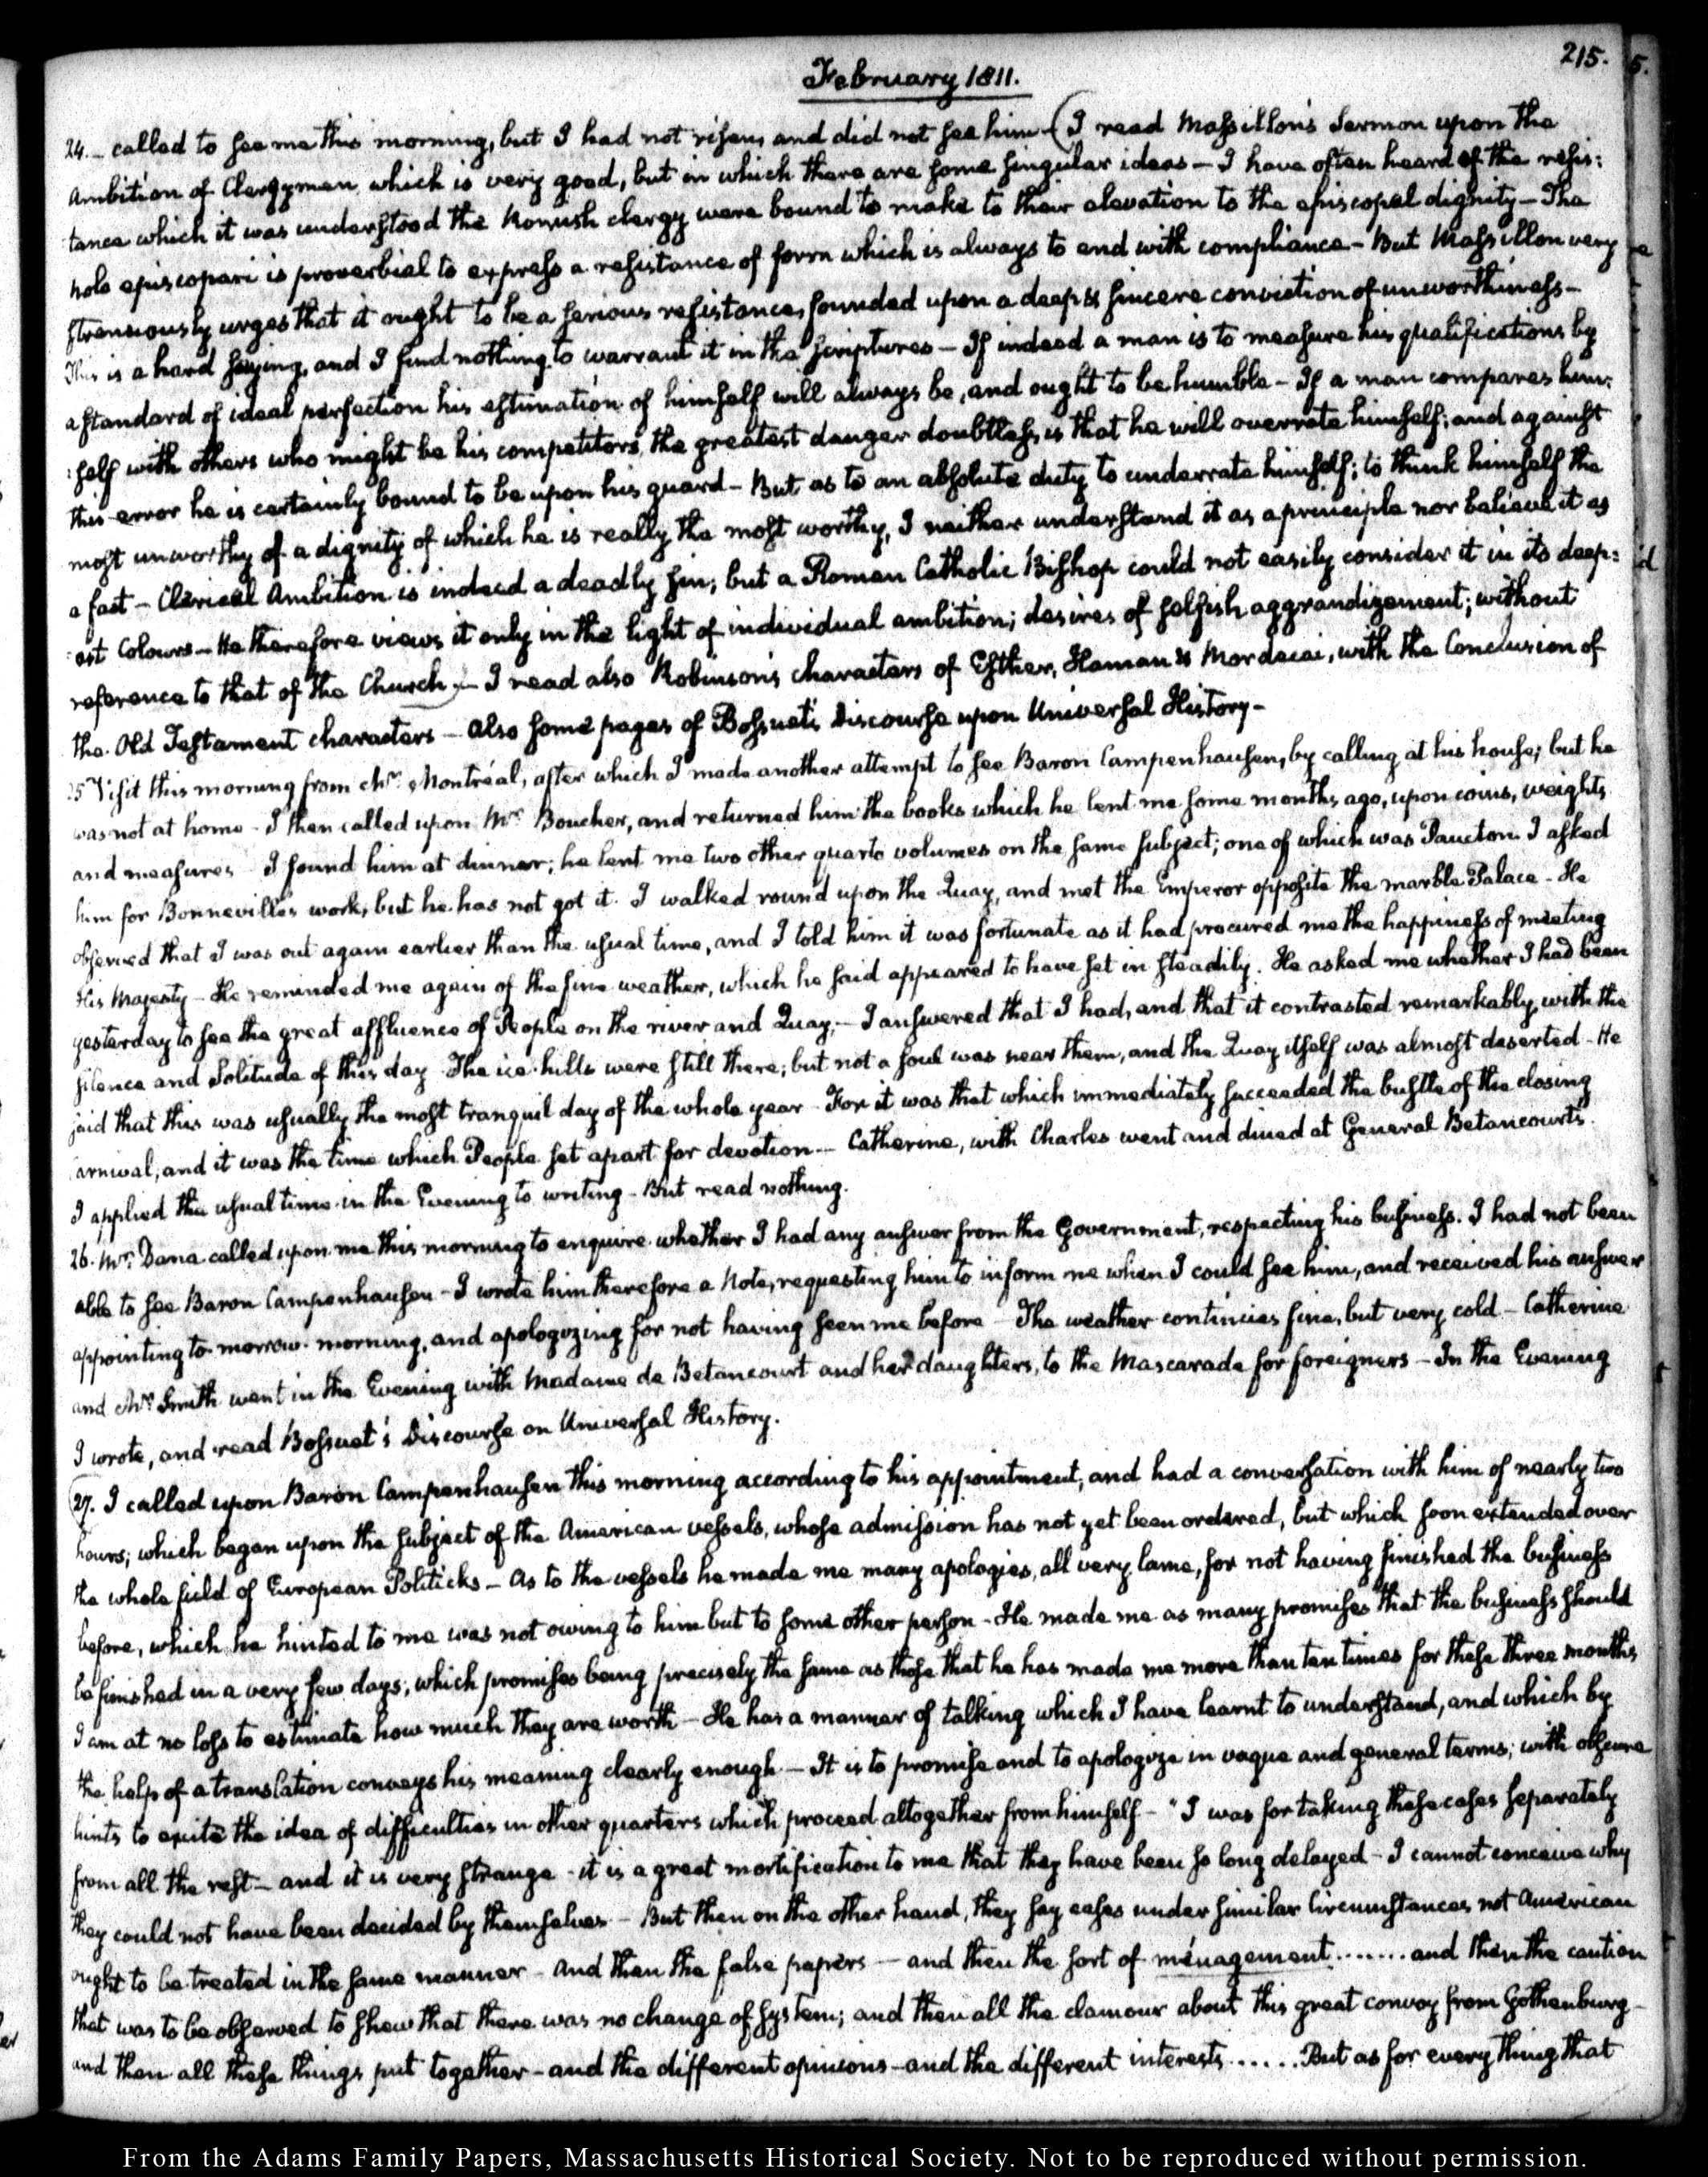 215.
February 1811.
24. — called to see me this morning, but I had not risen, and did not see him — (I read Massillon's Sermon upon the
Ambition of Clergymen, which is very good, but in which there are some singular ideas — I have often heard of the resis:
tance which it was understood the Romish clergy were bound to make to their elevation to the episcopal dignity — The
nolo episcopari is proverbial to express a resistance of form which is always to end with compliance — But Massillon very
strenuously urges that it ought to be a serious resistance, founded upon a deep & sincere conviction of unworthiness —
This is a hard saying, and I find nothing to warrant it in the Scriptures — If indeed a man is to measure his qualifications by
a standard of ideal perfection his estimation of himself will always be, and ought to be humble — If a man compares him:
:self with others who might be his competitors, the greatest danger doubtless, is that he will overrate himself; and against
this error he is certainly bound to be upon his guard — But as to an absolute duty to underrate himself; to think himself the
most unworthy of a dignity of which he is really the most worthy, I neither understand it as a principle nor believe it as
a fact — Clerical Ambition is indeed a deadly sin; but a Roman Catholic Bishop could not easily consider it in its deep:
:est Colours — He therefore views it only in the light of individual ambition; desires of selfish aggrandizement; without
reference to that of the Church.) — I read also Robinson's characters of Esther, Haman & Mordecai, with the Conclusion of
the Old Testament characters — Also some pages of Bossuet's Discourse upon Universal History —
25 Visit this morning from Mr. Montréal, after which I made another attempt to see Baron Campenhausen, by calling at his house; but he
was not at home — I then called upon Mr. Boucher, and returned him the books which he lent me some months ago, upon coins, weights
and measures — I found him at dinner; he lent me two other quarto volumes on the same subject; one of which was Paucton. I asked
him for Bonneville's work, but he has not got it. I walked round upon the Quay, and met the Emperor opposite the marble Palace — He
observed that I was out again earlier than the usual time, and I told him it was fortunate as it had procured me the happiness of meeting
His Majesty — He reminded me again of the fine weather, which he said appeared to have set in steadily. He asked me whether I had been
yesterday to see the great affluence of People on the river and Quay. — I answered that I had, and that it contrasted remarkably with the
silence and Solitude of this day. The ice-hills were still there; but not a soul was near them, and the Quay itself was almost deserted — He
said that this was usually the most tranquil day of the whole year — For it was that which immediately succeeded the bustle of the closing
Carnival; and it was the time which People set apart for devotion — Catherine, with Charles went and dined at General Betancourt's.
I applied the usual time in the Evening to writing — But read nothing.
26. Mr. Dana called upon me this morning to enquire whether I had any answer from the Government, respecting his business. I had not been
able to see Baron Campenhausen — I wrote him therefore a Note, requesting him to inform me when I could see him, and received his answer
appointing to-morrow morning, and apologizing for not having seen me before — The weather continues fine, but very cold — Catherine
and Mrs. Smith went in the Evening with Madame de Betancourt and her daughters, to the Mascarade for foreigners — In the Evening
I wrote, and read Bossuet's Discourse on Universal History.
(27. I called upon Baron Campenhausen this morning according to his appointment; and had a conversation with him of nearly two
hours; which began upon the subject of the American vessels, whose admission has not yet been ordered, but which soon extended over
the whole field of European Politicks — As to the vessels he made me many apologies, all very lame, for not having finished the business
before, which he hinted to me was not owing to him but to some other person — He made me as many promises that the business should
be finished in a very few days; which promises being precisely the same as those that he has made me more than ten times for these three months,
I am at no loss to estimate how much they are worth — He has a manner of talking which I have learnt to understand, and which by
the help of a translation conveys his meaning clearly enough. — It is to promise and to apologize in vague and general terms; with obscure
hints to excite the idea of difficulties in other quarters which proceed altogether from himself — "I was for taking these cases separately
from all the rest — and it is very strange — it is a great mortification to me that they have been so long delayed — I cannot conceive why
they could not have been decided by themselves — But then on the other hand, they say cases under similar Circumstances not American
ought to be treated in the same manner — And then the false papers — and then the sort of ménagement ....... and then the caution
that was to be observed to shew that there was no change of system; and then all the clamour about this great convoy from Gothenburg —
and then all these things put together — and the different opinions — and the different interests ...... But as for every thing that
From the Adams Family Papers, Massachusetts Historical Society. Not to be reproduced without permission.